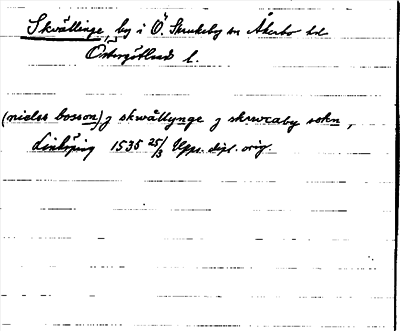 Skvällinge, by i Ö. Skrukeby sn Åkerbo hd
Östergötland l.
(nielss bosson) j skwællynge j skrwcaby sokn,
Linköping 1535 25/3 Upps. dipl. orig.